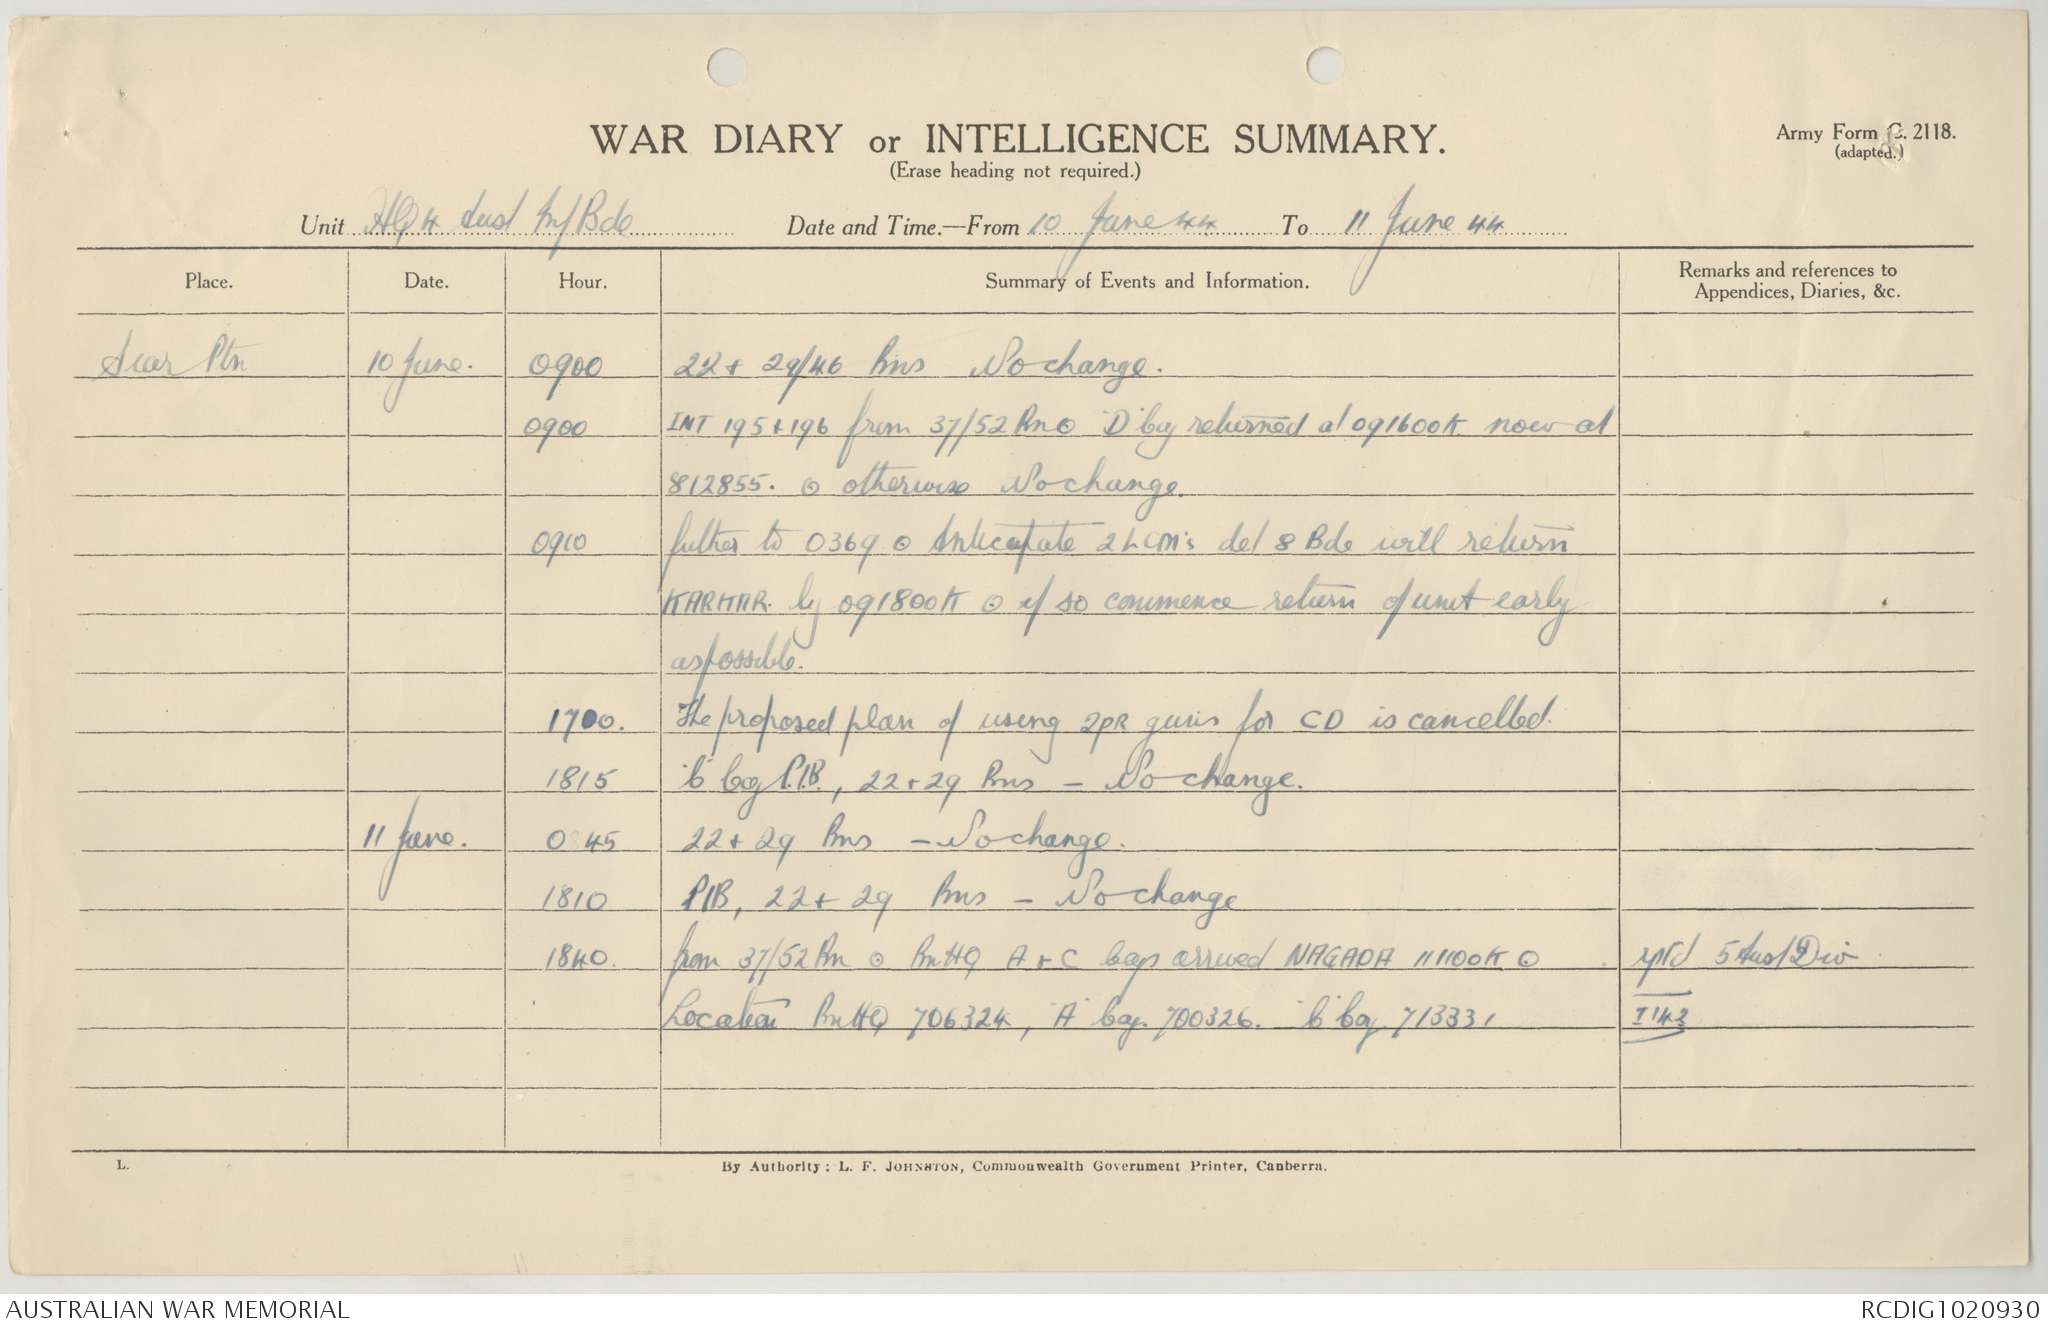 WAR DIARY or INTELLIGENCE SUMMARY.
(Erase heading not required.)
Army Form C. 2118.
(adapted.)
Unit HQ 4 Aust Inf Bde Date and Time.—From 10 June 44 To 11 June 44
Place. Date. Hour. Summary of Events and Information. Remarks and references to Appendices, Diaries, &c.
Scar Ptn 10 June. 0900 22 + 29/46 Bns No change.
0900 INT 195 + 196 from 37/52 Bn ⊙ 'D' Coy returned at 091600K now at
812855. ⊙ otherwise No change.
0910 futher to 0369 ⊙ Anticipate 2 LCM's del 8 Bde will return
KARKAR by 091800K ⊙ if so commence return of unit early
as possible.
1700. The proposed plan of using 2PR guns for CD is cancelled.
1815 'C' Coy P.I.B., 22 + 29 Bns — No change.
11 June. 0845 22 + 29 Bns — No change.
1810 PIB, 22 + 29 Bns — No change
1840. from 37/52 Bn ⊙ Bn HQ A + C Coys arrived NAGADA 111100K ⊙ rptd 5 Aust Div
Location Bn HQ 706324, 'A' Coy. 700326. 'C' Coy 713331 I 143
L.
By Authority: L. F. JOHNSTON, Commonwealth Government Printer, Canberra.
AUSTRALIAN WAR MEMORIAL RCDIG1020930